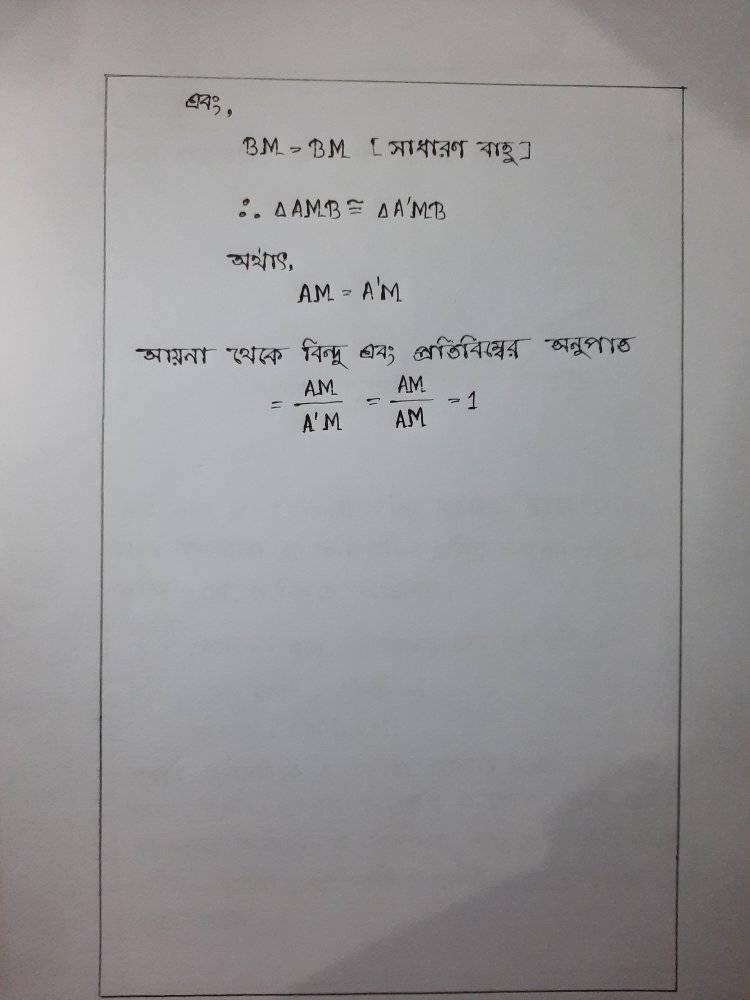 এবং,
BM = BM [সাধারণ বাহু]
∴ ΔAMB ≅ ΔA'MB
অর্থাৎ,
AM = A'M
আয়না থেকে বিন্দু এবং প্রতিবিম্বের অনুপাত
= AM/A'M = AM/AM = 1